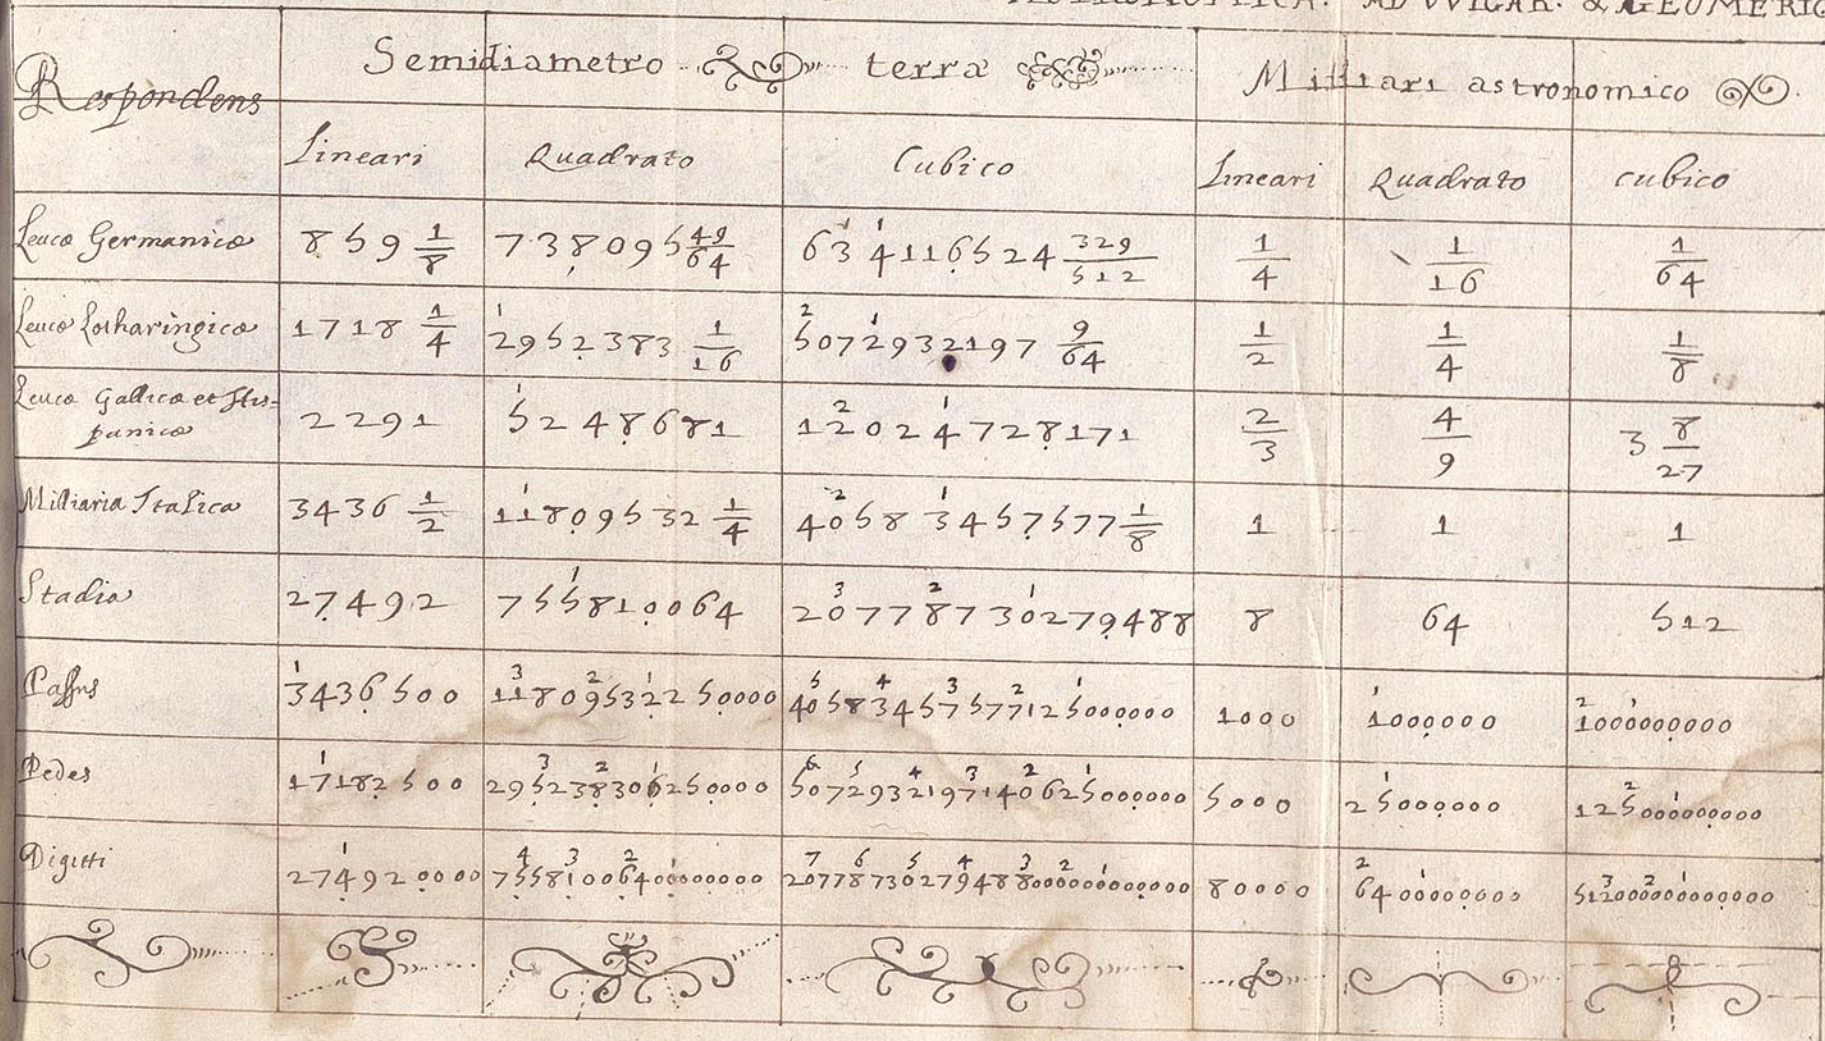 ASTRONOMICA. AD VVLGAR. & GEOMETRIC
Respondens
Semidiametro terræ
Milliari astronomico
Lineari Quadrato Cubico Lineari Quadrato cubico
Leucæ Germanicæ 859 1/8 738095 49/64 634116524 329/512 1/4 1/16 1/64
Leucæ Lotharingicæ 1718 1/4 2952383 1/16 5072932197 9/64 1/2 1/4 1/8
Leucæ Gallicæ et His=
panicæ 2291 5248681 12024728171 2/3 4/9 3 8/27
Milliaria Italica 3436 1/2 11809532 1/4 40583457577 1/8 1 1 1
Stadia 27492 755810064 20778730279488 8 64 512
Passus 3436500 11809532250000 40583457577125000000 1000 1000000 1000000000
Pedes 17182500 295238306250000 5072932197140625000000 5000 25000000 125000000000
Digitti 274920000 75581006400000000 20778730279488000000000000 80000 6400000000 512000000000000